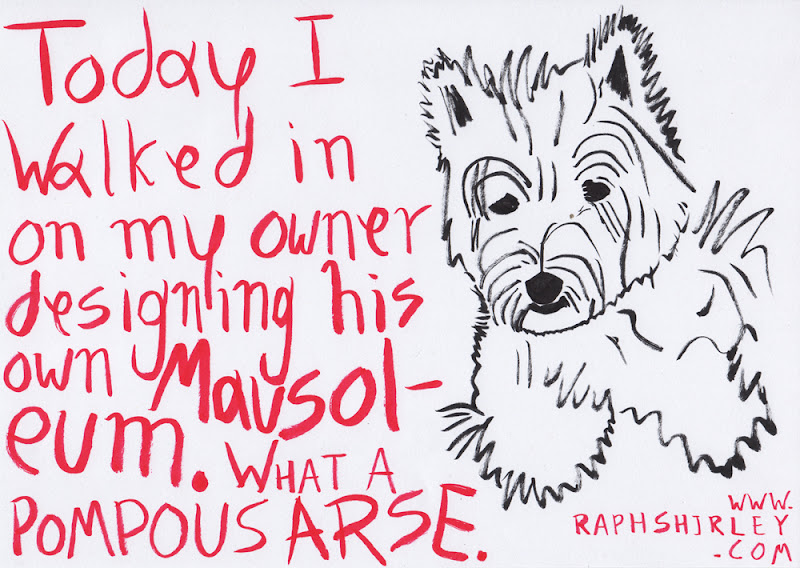 Today I
Walked in
on my owner
designing his
own Mausol-
eum. WHAT A
POMPOUS ARSE.
WWW.
RAPHSHIRLEY
.COM